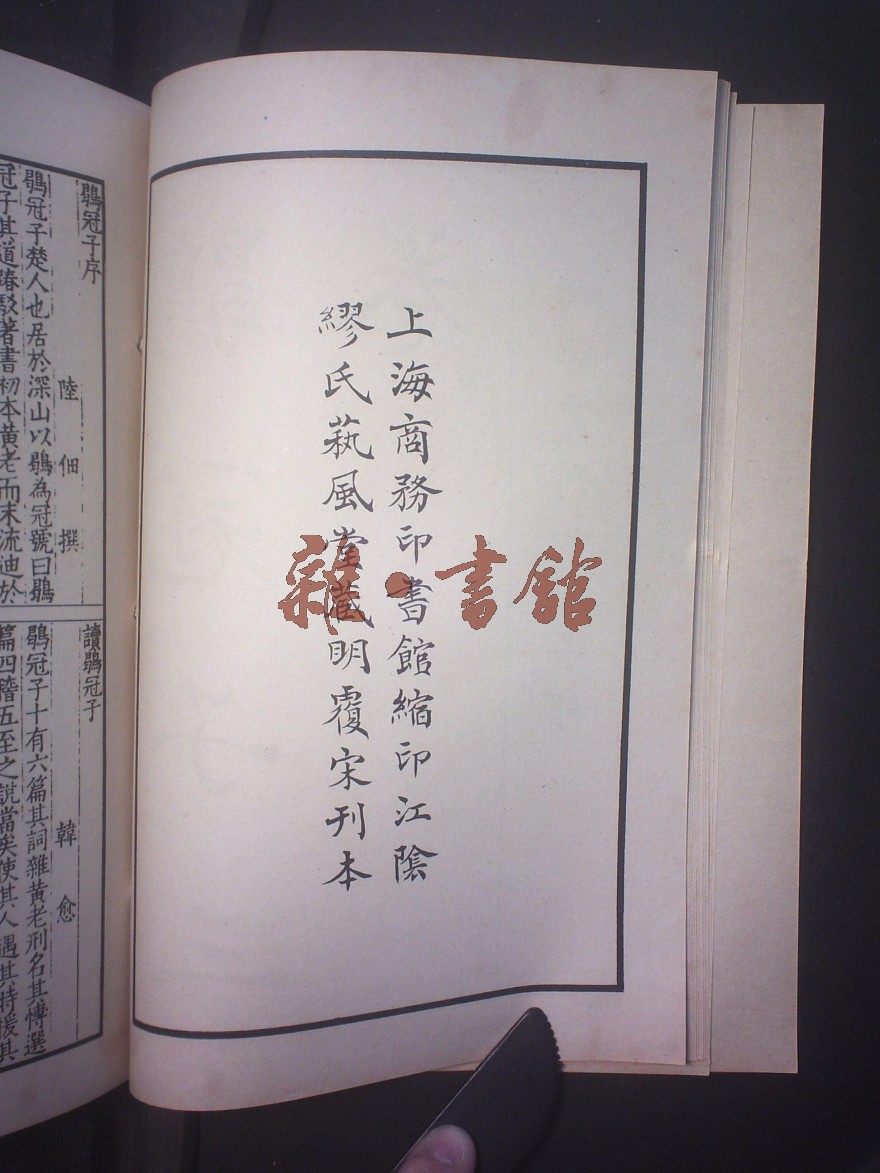 上海商務印書館縮印江陰
繆氏蓺風堂藏明覆宋刊本
雜·書館
鶡冠子序
陸佃撰
鶡冠子楚人也居於深山以鶡為冠號曰鶡
冠子其道踳駁著書初本黃老而末流迪於
讀鶡冠子
韓愈
鶡冠子十有六篇其詞雜黃老刑名其愽選
篇四稽五至之說當矣使其人遇其時援其